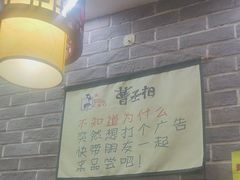 曹丞相
不知道为什么
突然想打个广告
快带朋友一起
来品尝吧！